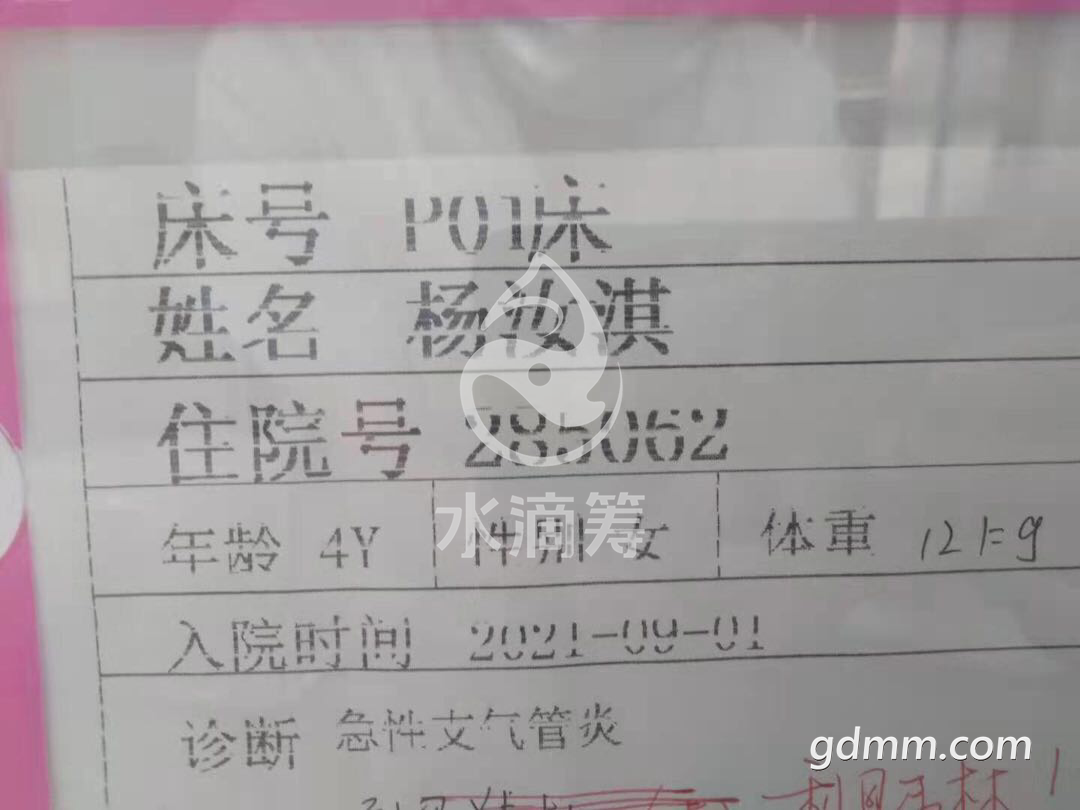 床号 P01床
姓名 杨汝淇
住院号 285062
水滴筹
年龄 4Y 性别 女 体重 12kg
入院时间 2021-09-01
诊断 急性支气管炎
gdmm.com